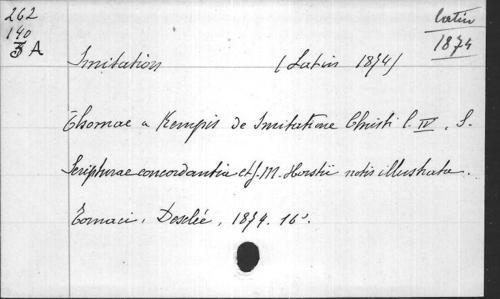 262
140
3 A
Latin
1874
Imitation (Latin 1874)
Thomae a Kempis de Imitatione Christi l. IV, S.
Scripturae concordantia et J. M. Horstii notis illustrata.
Tornaci, Desclée, 1874. 16°.